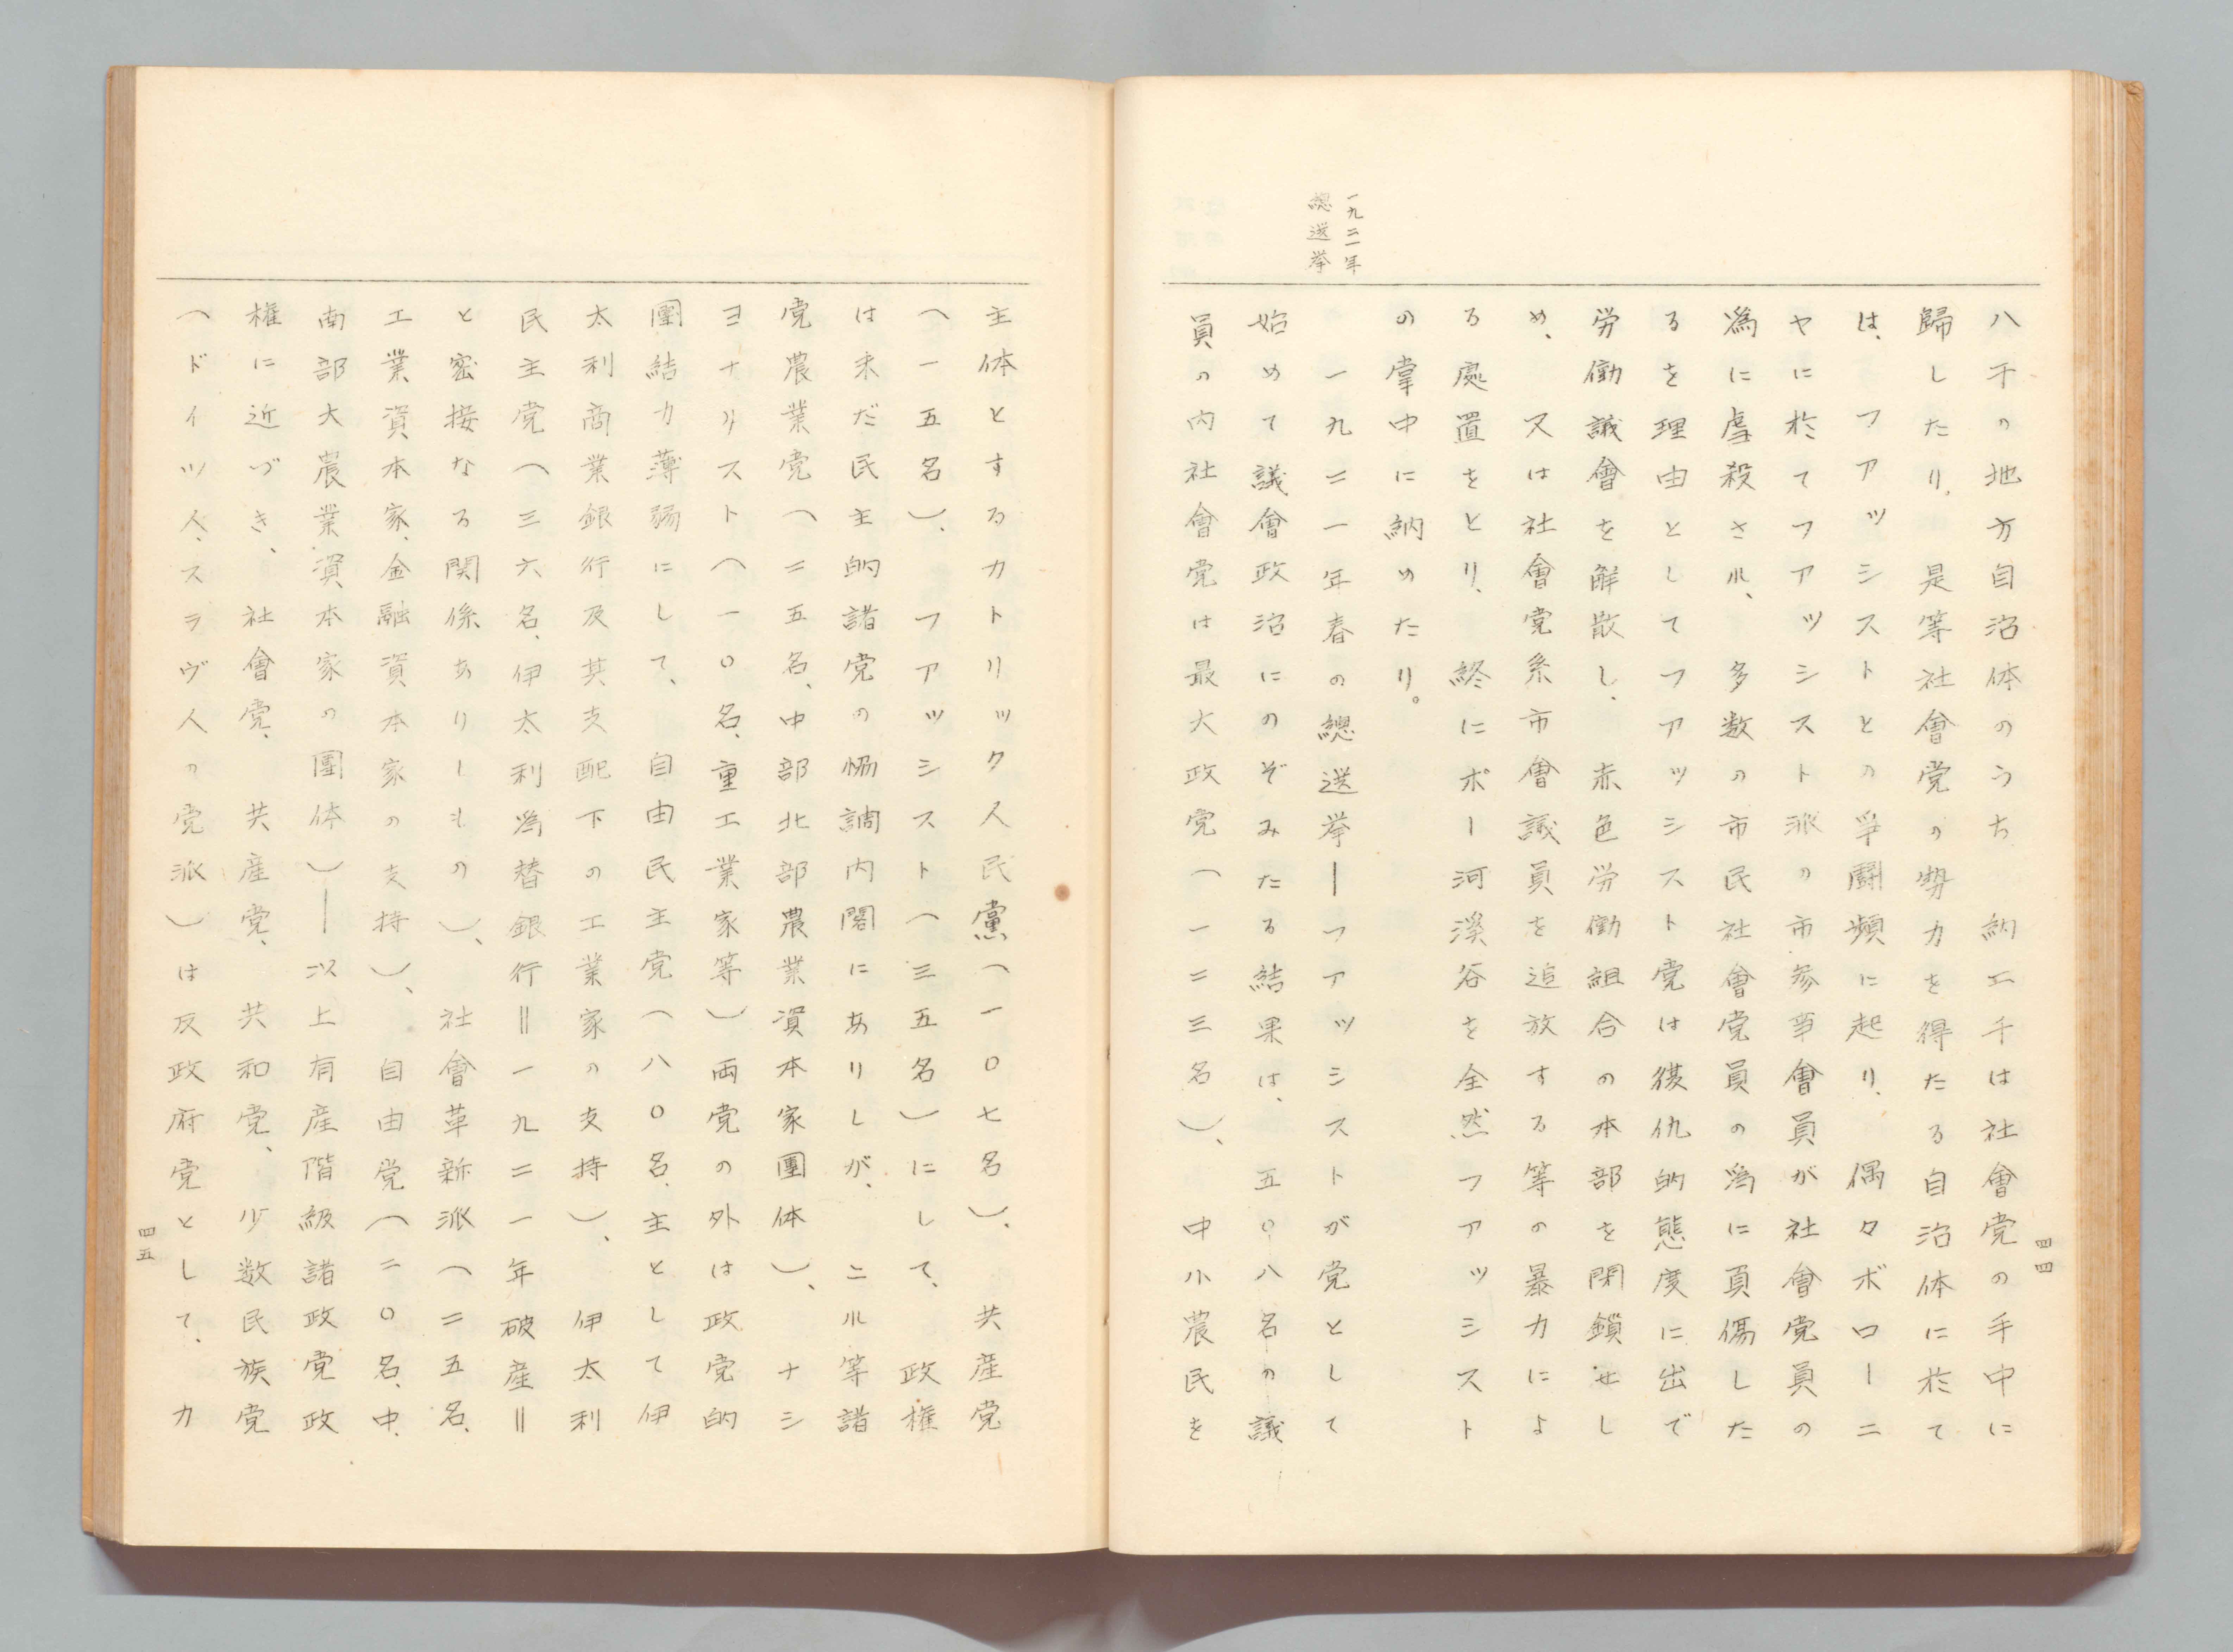 四四
一九二一年
總選挙
八千の地方自治体のうち　納二千は社會党の手中に
歸したり、是等社會党の勢力を得たる自治体に於て
は、ファッシストとの爭鬪頻に起り、偶々ボローニ
ヤに於てファッシスト派の市参事會員が社會党員の
爲に虐殺され、多数の市民社會党員の爲に負傷した
るを理由としてファッシスト党は復仇的態度に出で
労働議會を解散し、赤色労働組合の本部を閉鎖せし
め、又は社會党系市會議員を追放する等の暴力によ
る處置をとり、終にボー河溪谷を全然ファッシスト
の掌中に納めたり。
一九二一年春の總選挙―ファッシストが党として
始めて議會政治にのぞみたる結果は、五〇八名の議
員の内社會党は最大政党（一二三名）、中小農民を
主体とするカトリック人民黨（一〇七名）、共産党
（一五名）、ファッシスト（三五名）にして、政権
は未だ民主的諸党の恊調内閣にありしが、ニル等諸
党農業党（二五名、中部北部農業資本家團体）、ナシ
ヨナリスト（一〇名、重工業家等）両党の外は政党的
團結力薄弱にして、自由民主党（八〇名、主として伊
太利商業銀行及其支配下の工業家の支持）、伊太利
民主党（三六名、伊太利爲替銀行＝一九二一年破産＝
と密接なる関係ありしもの）、社會革新派（二五名、
工業資本家、金融資本家の支持）、自由党（二〇名、中、
南部大農業資本家の團体）―以上有産階級諸政党政
権に近づき、社會党、共産党、共和党、少数民族党
（ドイツ人、スラヴ人の党派）は反政府党として、カ
四五